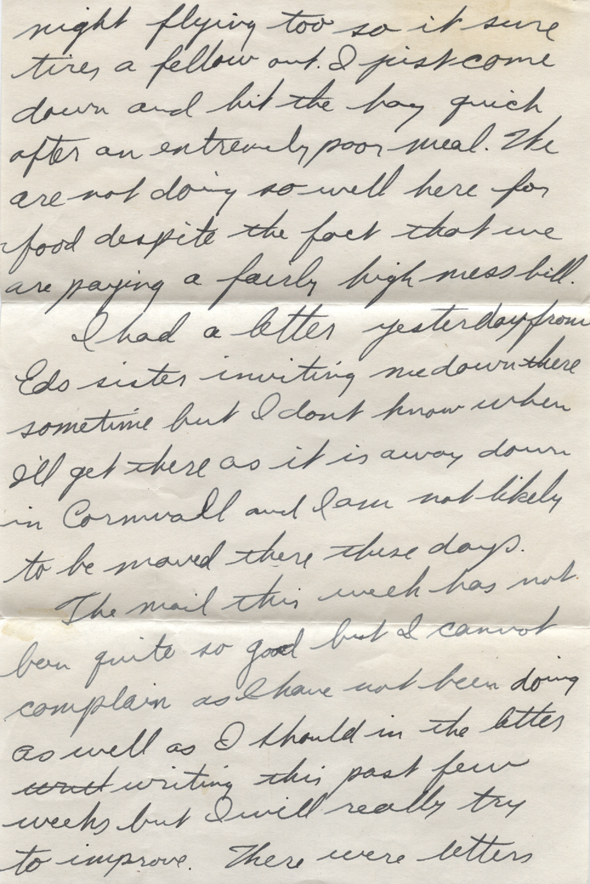 night flying too so it sure
tires a fellow out. I just come
down and hit the hay quick
after an extremely poor meal. We
are not doing so well here for
food despite the fact that we
are paying a fairly high mess bill.
I had a letter yesterday from
Eds sister inviting me down there
sometime but I dont know when
I'll get there as it is away down
in Cornwall and I am not likely
to be moved there these days.
The mail this week has not
been quite so good but I cannot
complain as I have not been doing
as well as I should in the letter
writing this past few
weeks but I will really try
to improve. There were letters